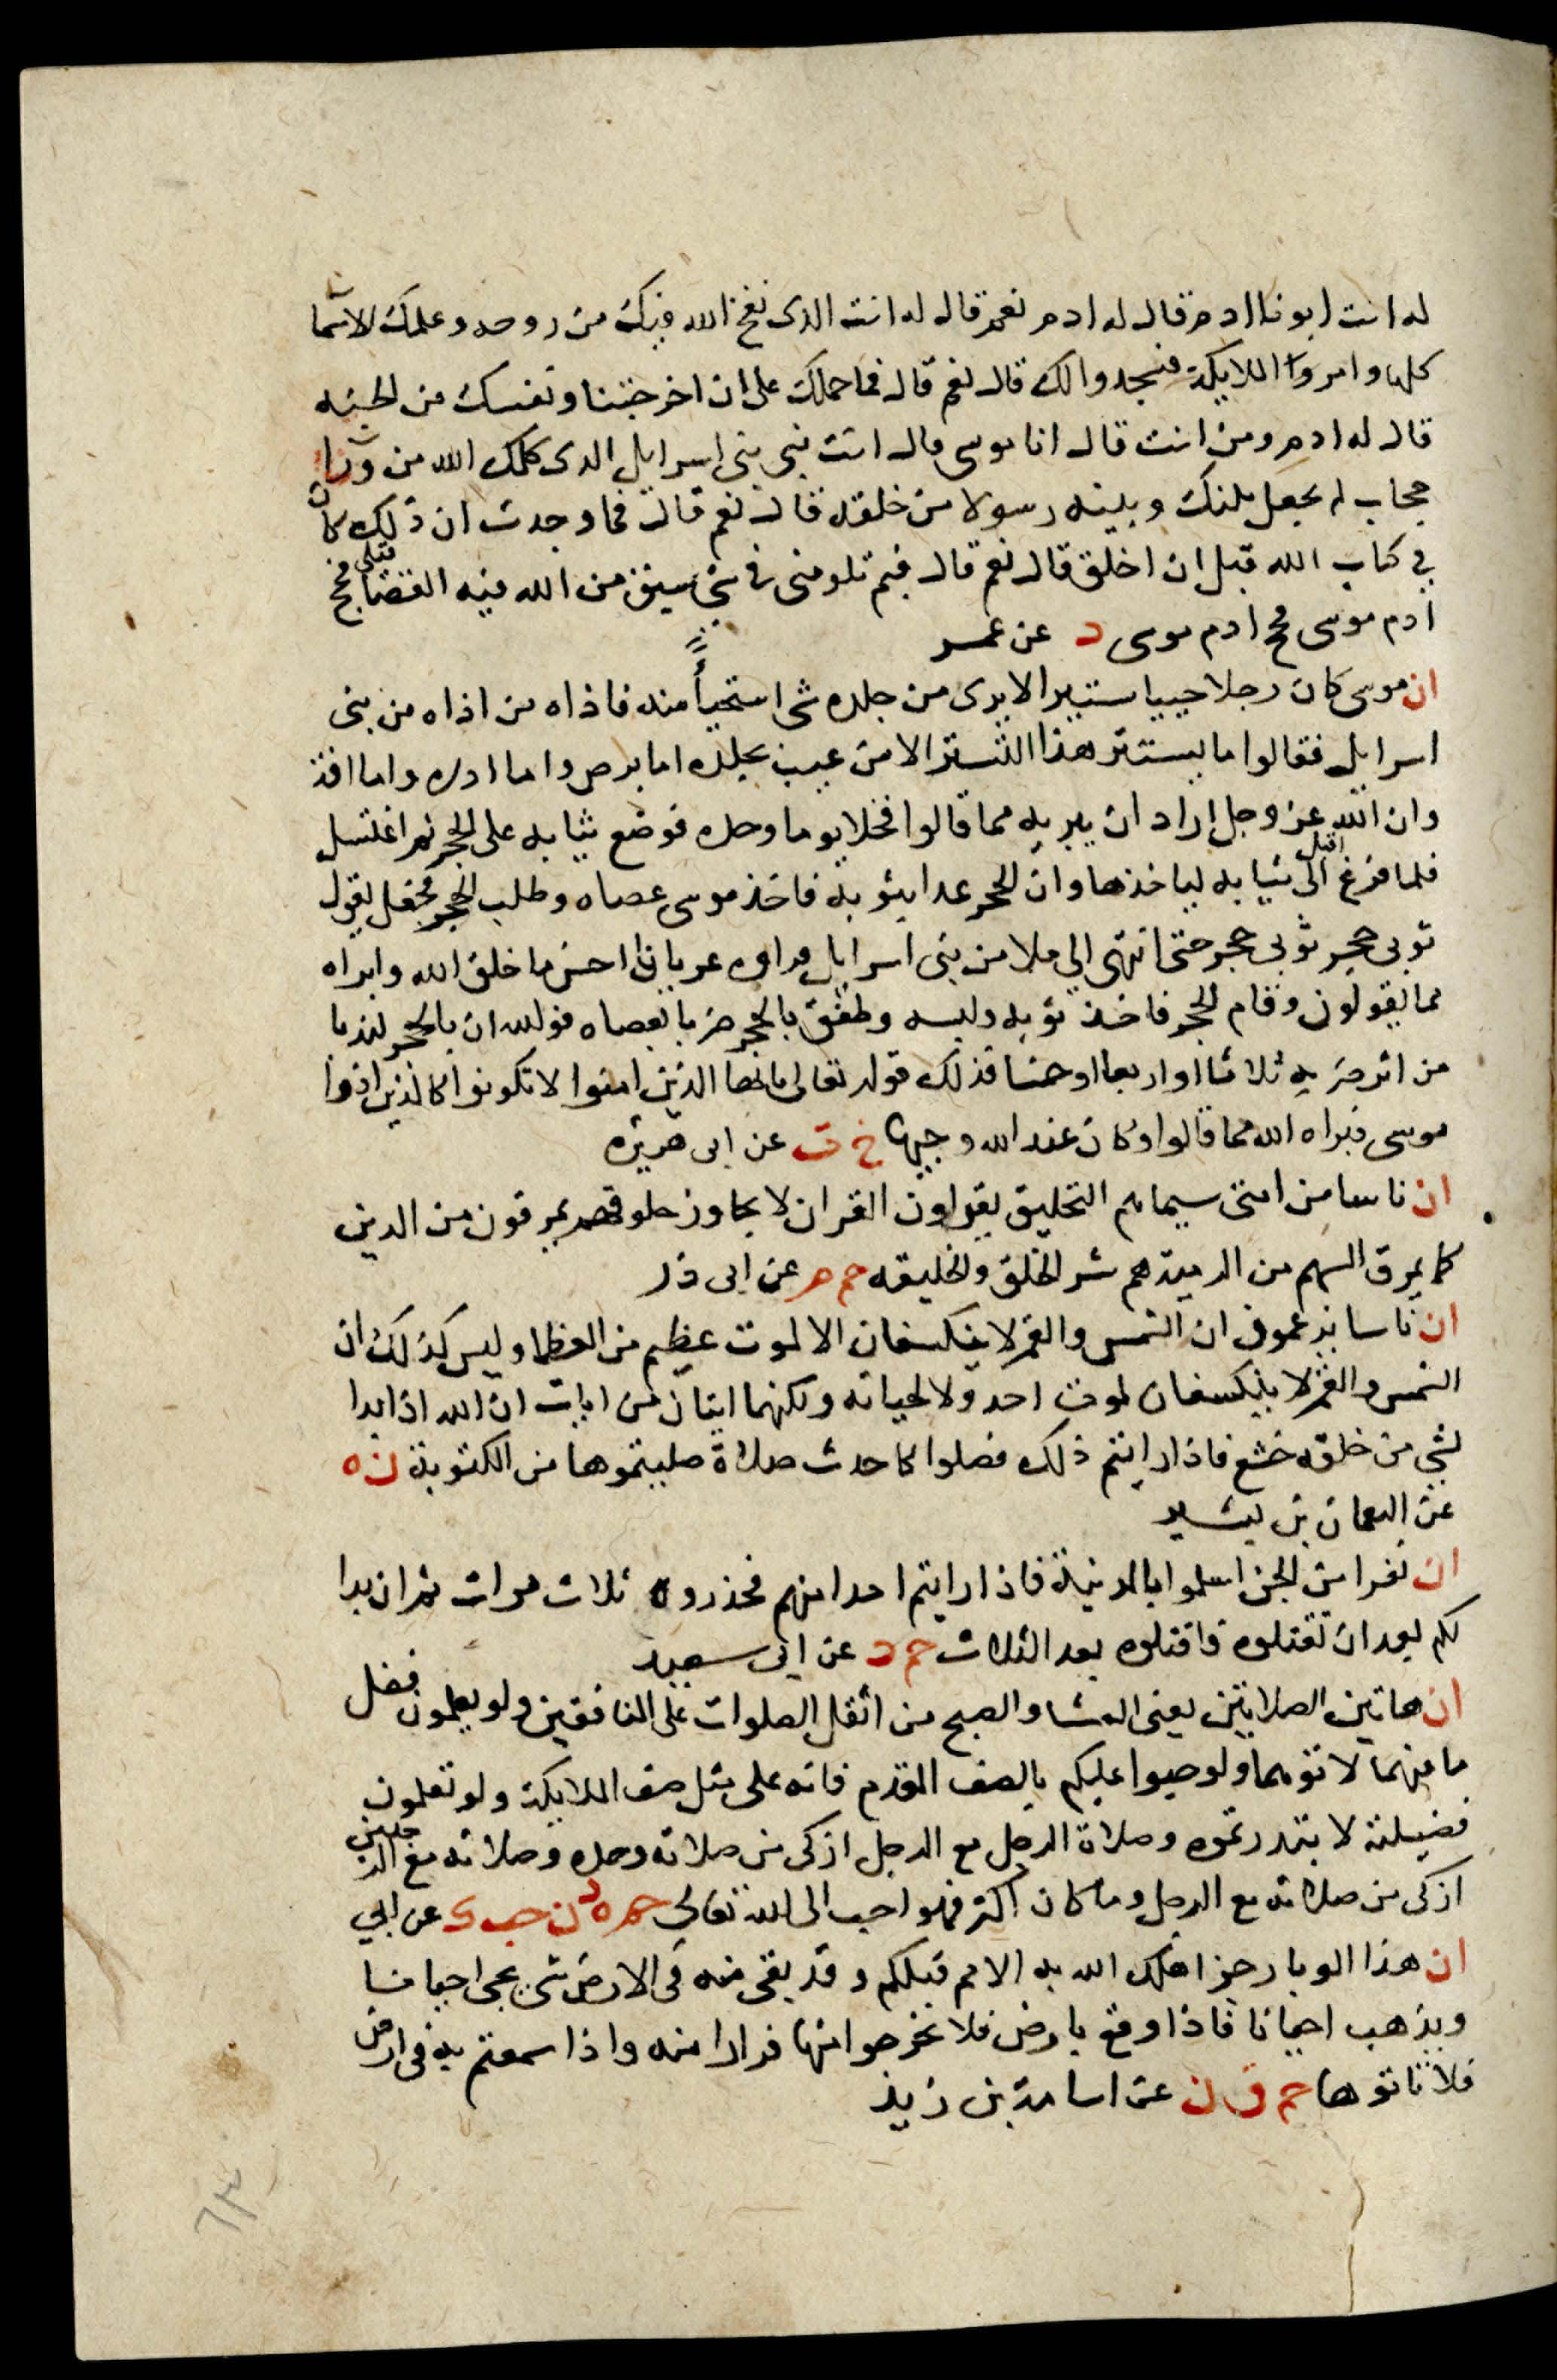 له انت ابونا ادم قال له ادم نعم قال له انت الذى نفخ الله فيك من روحه وعلمك الاسما
كلها وامر الملايكة فسجدوا لك قال نعم قال فما حملك على ان اخرجتنا ونفسك من الجنه
قال له ادم ومن انت قال انا موسى قال انت نبى بنى اسرايل الذى كلمك الله من ورا
حجاب لم يجعل بينك وبينه رسولا من خلقه قال نعم قال فما وجدت ان ذلك كان
في كتاب الله قبل ان اخلق قال نعم قال فبم تلومنى فى شى سبق من الله فيه القضا قبلى فحج
ادم موسى فحج ادم موسى د عن عمر
ان موسى كان رجلا حييا ستيرا لا يرى من جلده شى استحيأ منه فاذاه من اذاه من بنى
اسرايل فقالوا ما يستتر هذا التستر الا من عيب بجلده اما برص واما ادره واما افة
وان الله عز وجل اراد ان يبريه مما قالوا فخلا يوما وحده فوضع ثيابه على الحجر ثم اغتسل
فلما فرغ اقبل الى ثيابه لياخذها وان الحجر عدا بثوبه فاخذ موسى عصاه وطلب الحجر فجعل يقول
ثوبى حجر ثوبى حجر حتى انتهى الى ملا من بنى اسرايل فراوه عريانا احسن ما خلق الله وابراه
مما يقولون وقام الحجر فاخذ ثوبه ولبسه وطفق بالحجر ضربا بعصاه فوالله ان بالحجر لندبا
من اثر ضربه ثلاثا او اربعا او خمسا فذلك قوله تعالى يايها الذين امنوا لا تكونوا كالذين اذوا
موسى فبراه الله مما قالوا وكان عند الله وجيها خ ت عن ابى هريره
ان ناسا من امتى سيماهم التحليق يقراون القران لا يجاوز حلوقهم يمرقون من الدين
كما يمرق السهم من الرمية هم شر الخلق والخليقه حم م عن ابى ذر
ان ناسا يزعمون ان الشمس والقمر لا ينكسفان الا لموت عظيم من العظما وليس كذلك ان
الشمس والقمر لا ينكسفان لموت احد ولا لحياته ولكنهما ايتان من ايات ان الله اذا بدا
لشي من خلقه خشع فاذا رايتم ذلك فصلوا كاحدث صلاة صليتموها من المكتوبة ن ه
عن النعمان بن بشير
ان نفرا من الجن اسلموا بالمدينة فاذا رايتم احدا منهم فحذروه ثلاث مرات ثم ان بدا
لكم بعد ان تقتلوه فاقتلوه بعد الثلاث حم د عن ابى سعيد
ان هاتين الصلاتين يعنى العشا والصبح من اثقل الصلوات على المنافقين ولو يعلمون فضل
ما فيهما لاتوهما ولو حبوا عليكم بالصف المقدم فانه على مثل صف الملايكة ولو تعلمون
فضيلته لابتدرتموه وصلاة الرجل مع الرجل ازكى من صلاته وحده وصلاته مع الرجلين
ازكى من صلاته مع الرجل وما كان اكثر فهو احب الى الله تعالى حم ه د ن حب ك عن ابي
ان هذا الوبا رجز اهلك الله به الامم قبلكم وقد بقى منه فى الارض شى يجى احيانا
ويذهب احيانا فاذا وقع بارض فلا تخرجوا منها فرارا منه واذا سمعتم به فى ارض
فلا تاتوها حم ق ن عن اسامة بن زيد
٦٣